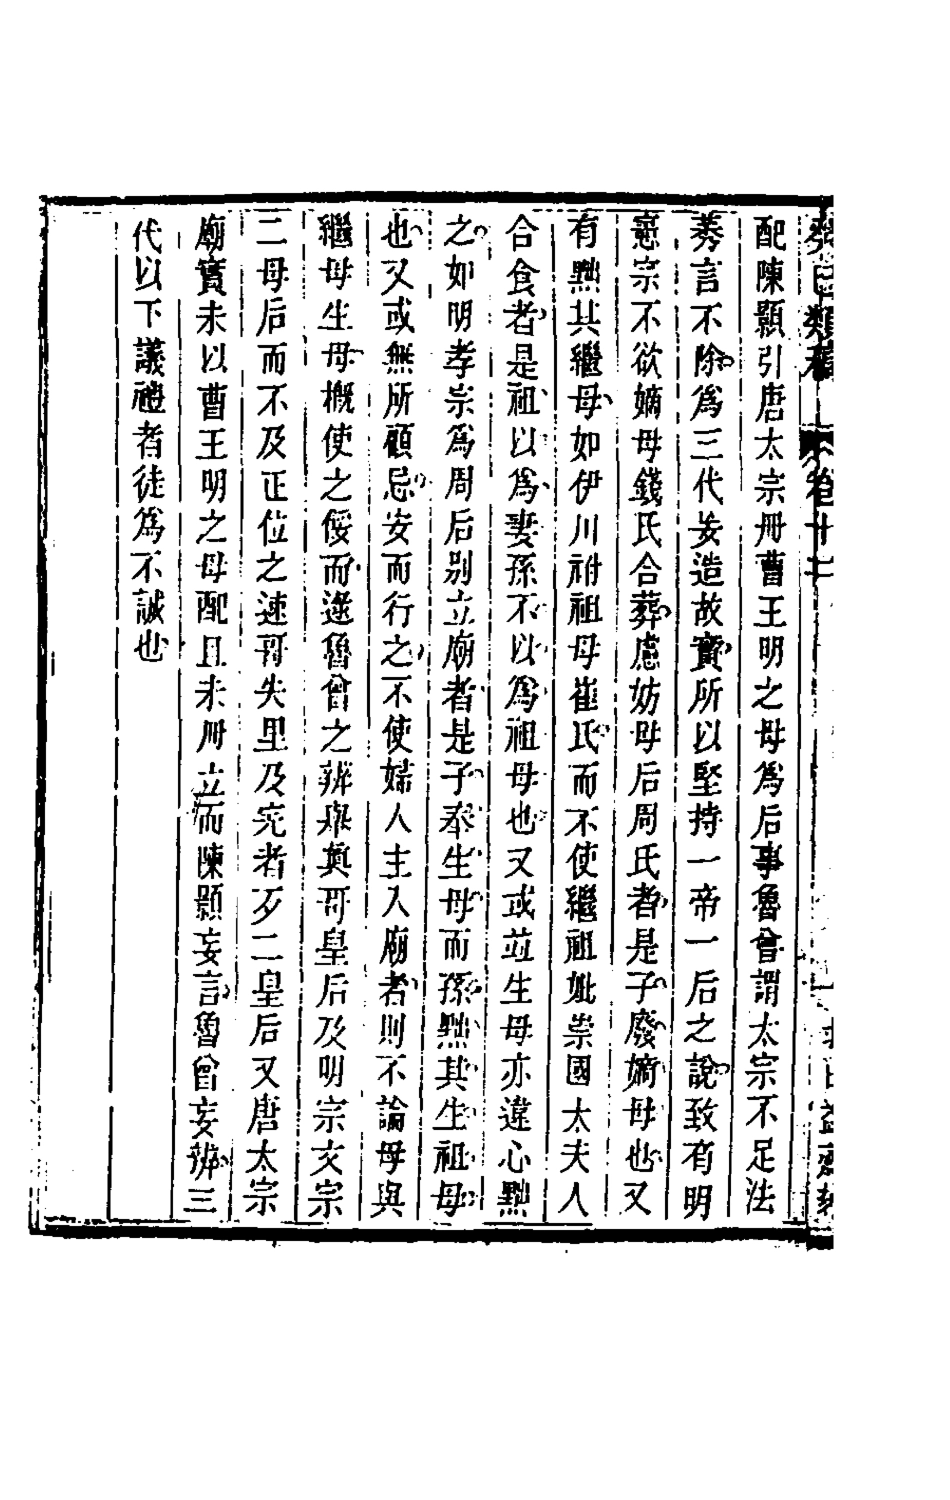 癸巳類稿 卷十二 求日益齋刻
配陳顥引唐太宗冊曹王明之母爲后事魯曾謂太宗不足法
莠言不除爲三代妄造故實所以堅持一帝一后之說致有明
憲宗不欲嫡母錢氏合葬慮妨母后周氏者是子廢嫡母也又
有黜其繼母如伊川祔祖母崔氏而不使繼祖妣崇國太夫人
合食者是祖以爲妻孫不以爲祖母也又或並生母亦違心黜
之如明孝宗爲周后別立廟者是子奉生母而孫黜其生祖母
也又或無所顧忌安而行之不使婦人主入廟者則不論母與
繼母生母槪使之餒而遂魯曾之辨舉眞哥皇后及明宗文宗
二母后而不及正位之速哥失里及完者歹二皇后又唐太宗
廟實未以曹王明之母配且未冊立而陳顥妄言魯曾妄辨三
代以下議禮者徒爲不誠也